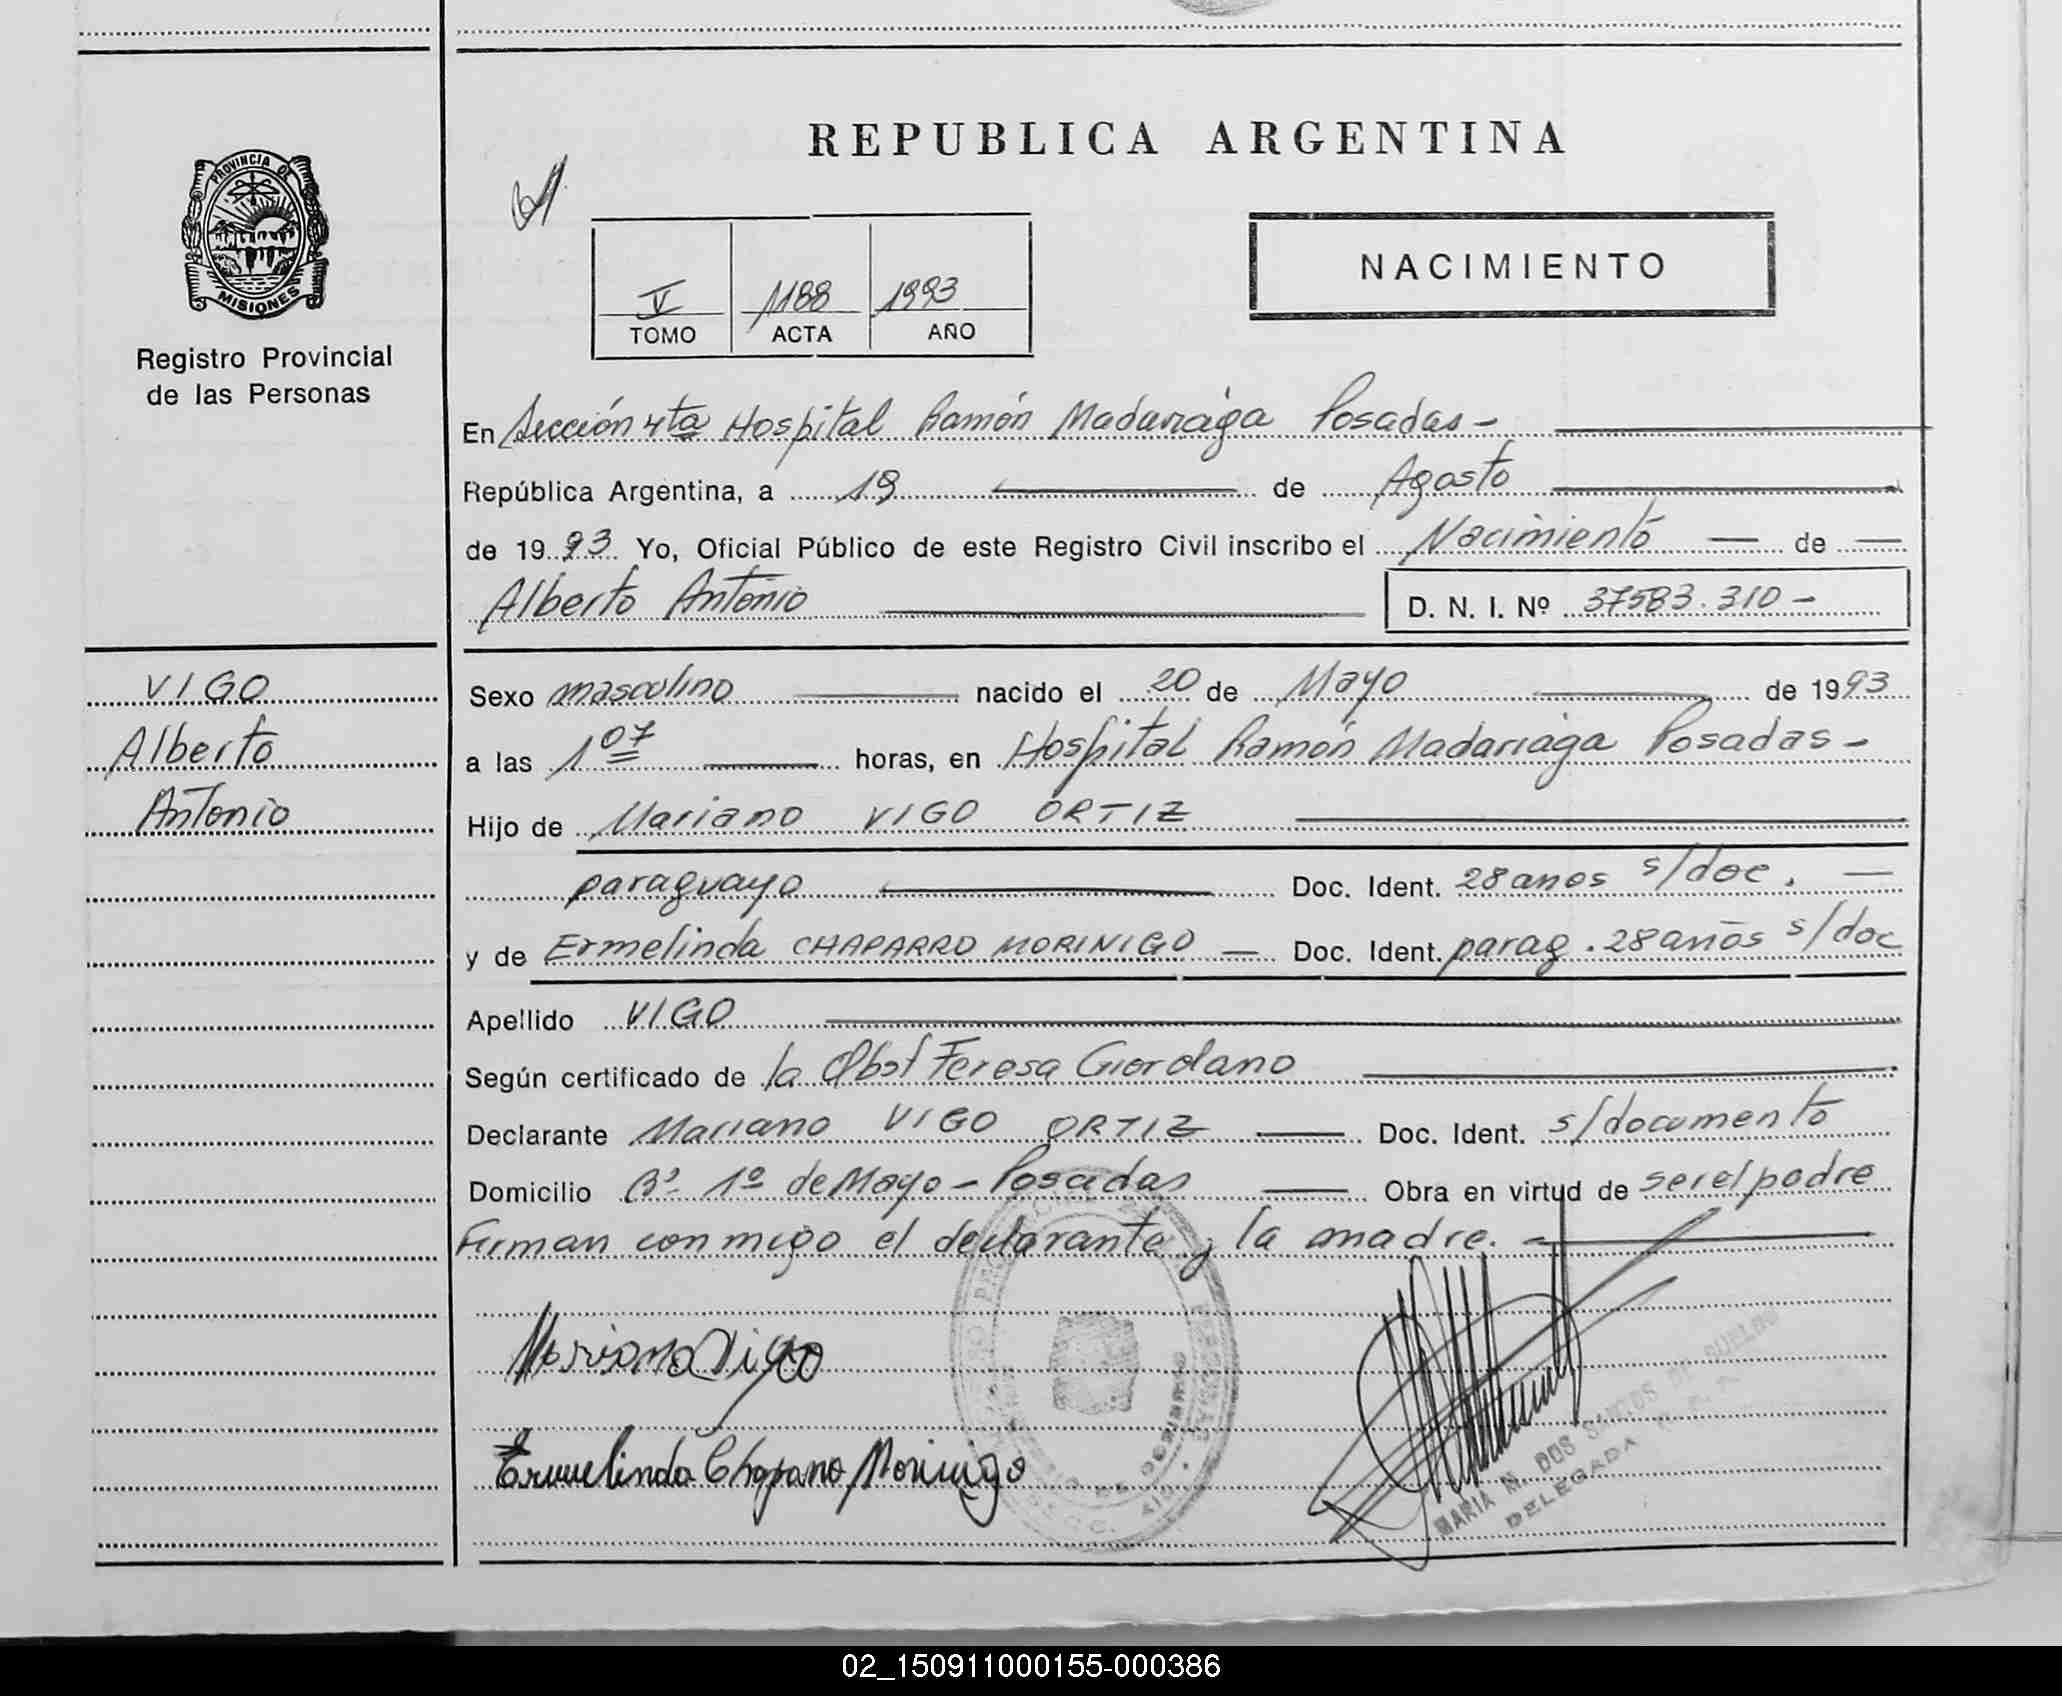 REPUBLICA ARGENTINA
PROVINCIA DE
MISIONES
Registro Provincial
de las Personas
V 1188 1993
TOMO ACTA AÑO
NACIMIENTO
En Sección 4ta Hospital Ramón Madariaga Posadas -
República Argentina, a 19 de Agosto
de 1993 Yo, Oficial Público de este Registro Civil inscribo el Nacimiento de
Alberto Antonio D. N. I. Nº 37583.310 -
VIGO
Alberto
Antonio
Sexo masculino nacido el 20 de Mayo de 1993
a las 1 07 horas, en Hospital Ramón Madariaga Posadas -
Hijo de Mariano VIGO ORTIZ
paraguayo Doc. Ident. 28 años s/doc.
y de Ermelinda CHAPARRO MORINIGO Doc. Ident. parag. 28 años s/doc
Apellido VIGO
Según certificado de la Obst Teresa Giordano
Declarante Mariano VIGO ORTIZ Doc. Ident. s/documento
Domicilio Bº 1º de Mayo - Posadas Obra en virtud de ser el padre
Firman conmigo el declarante y la madre.
Mariano Vigo
Ermelinda Chaparro Morinigo
MARIA N. DOS SANTOS DE
DELEGADA
02_150911000155-000386